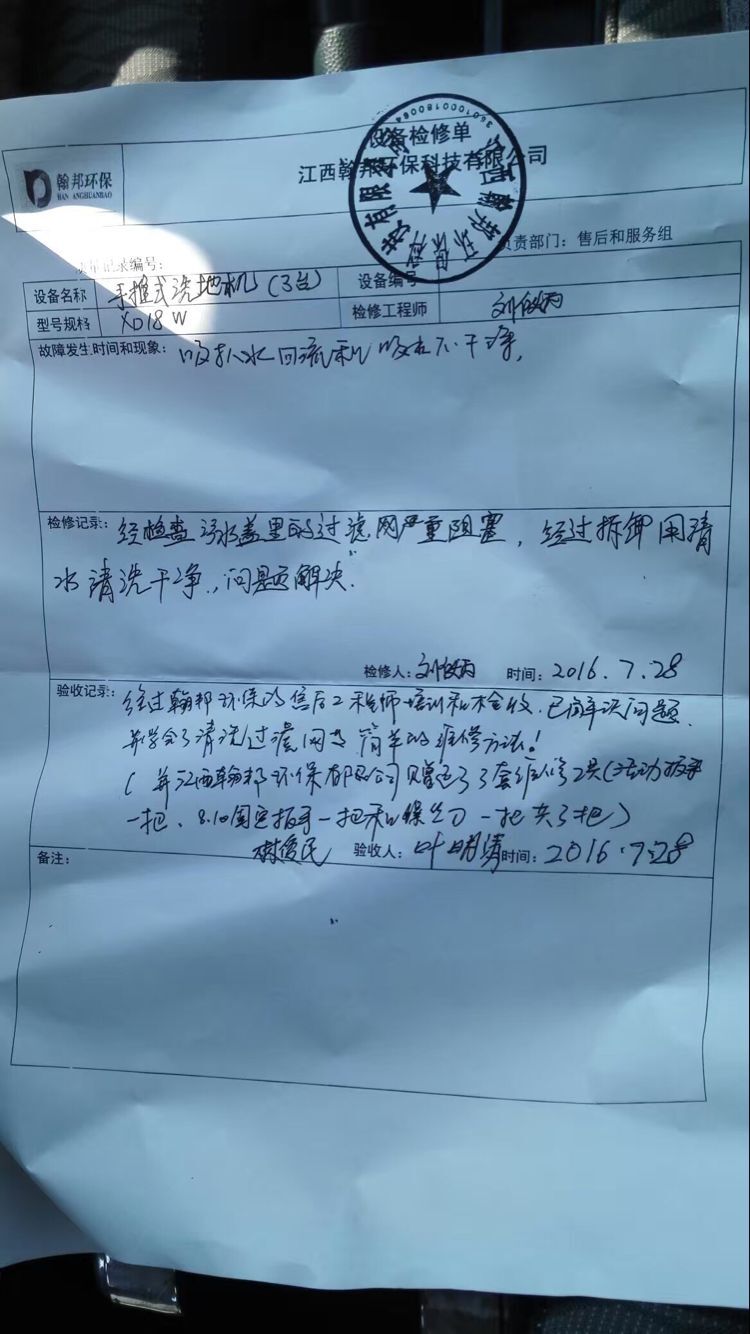 设备检修单
江西翰邦环保科技有限公司
翰邦环保
HAN ANGHUANBAO
3601000180064
质量记录编号：
负责部门：售后和服务组
设备名称 手推式洗地机（3台） 设备编号
型号规格 XD18W 检修工程师 刘
故障发生时间和现象：吸扒水回流和吸水不干净，
检修记录：经检查污水盖里的过滤网严重阻塞，经过拆卸用清
水清洗干净，问题解决.
检修人：刘 时间：2016.7.28
验收记录：经过翰邦环保的售后工程师培训和检修，已解决问题.
并学会了清洗过滤网与简单的维修方法！
（并江西翰邦环保有限公司赠送了3套维修工具（活动扳手
一把、8.10固定扳手一把和螺丝刀一把共3把）
验收人：叶明清 时间：2016.7.28
备注：